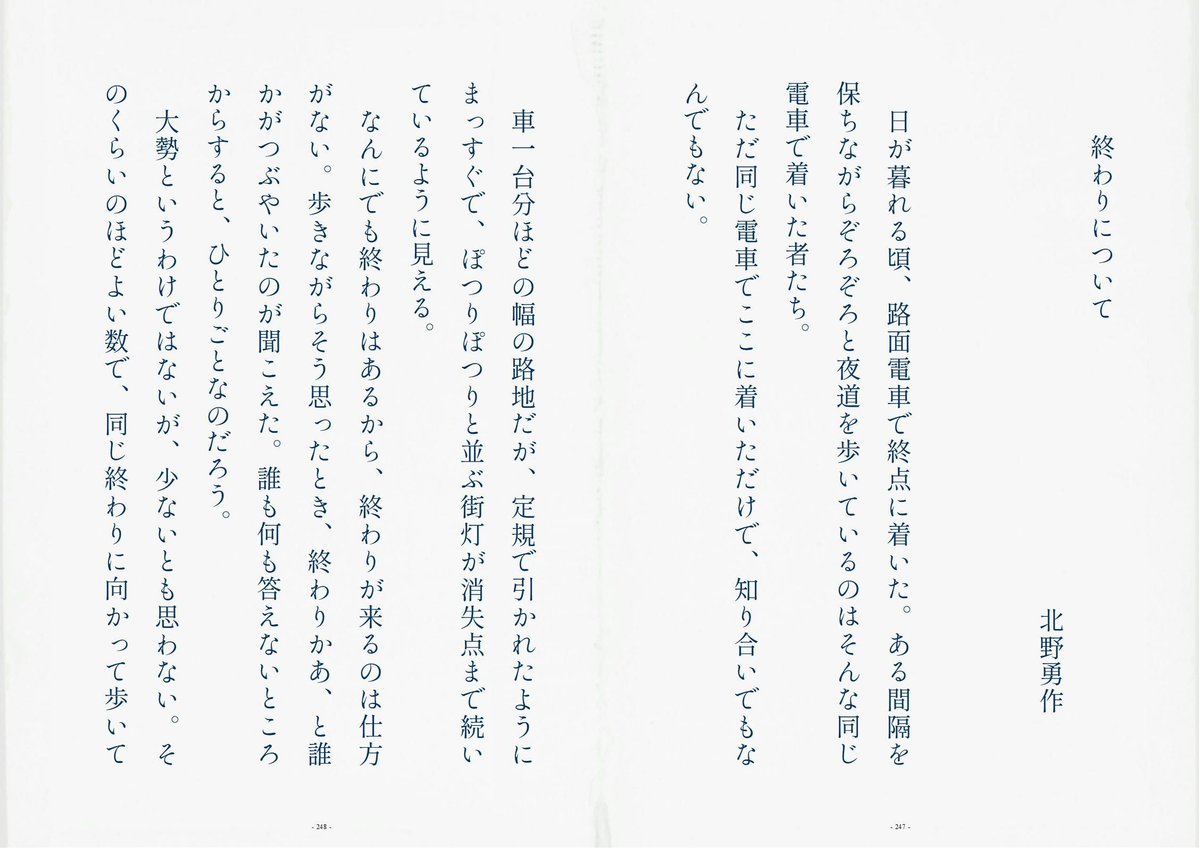 終わりについて
北野勇作
日が暮れる頃、路面電車で終点に着いた。ある間隔を
保ちながらぞろぞろと夜道を歩いているのはそんな同じ
電車で着いた者たち。
ただ同じ電車でここに着いただけで、知り合いでもな
んでもない。
- 247 -
車一台分ほどの幅の路地だが、定規で引かれたように
まっすぐで、ぽつりぽつりと並ぶ街灯が消失点まで続い
ているように見える。
なんにでも終わりはあるから、終わりが来るのは仕方
がない。歩きながらそう思ったとき、終わりかあ、と誰
かがつぶやいたのが聞こえた。誰も何も答えないところ
からすると、ひとりごとなのだろう。
大勢というわけではないが、少ないとも思わない。そ
のくらいのほどよい数で、同じ終わりに向かって歩いて
- 248 -